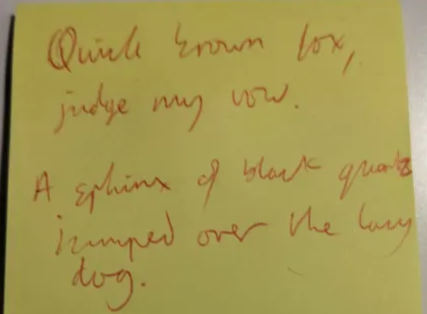 Quick brown fox,
judge my vow.
A sphinx of black quartz
jumped over the lazy
dog.